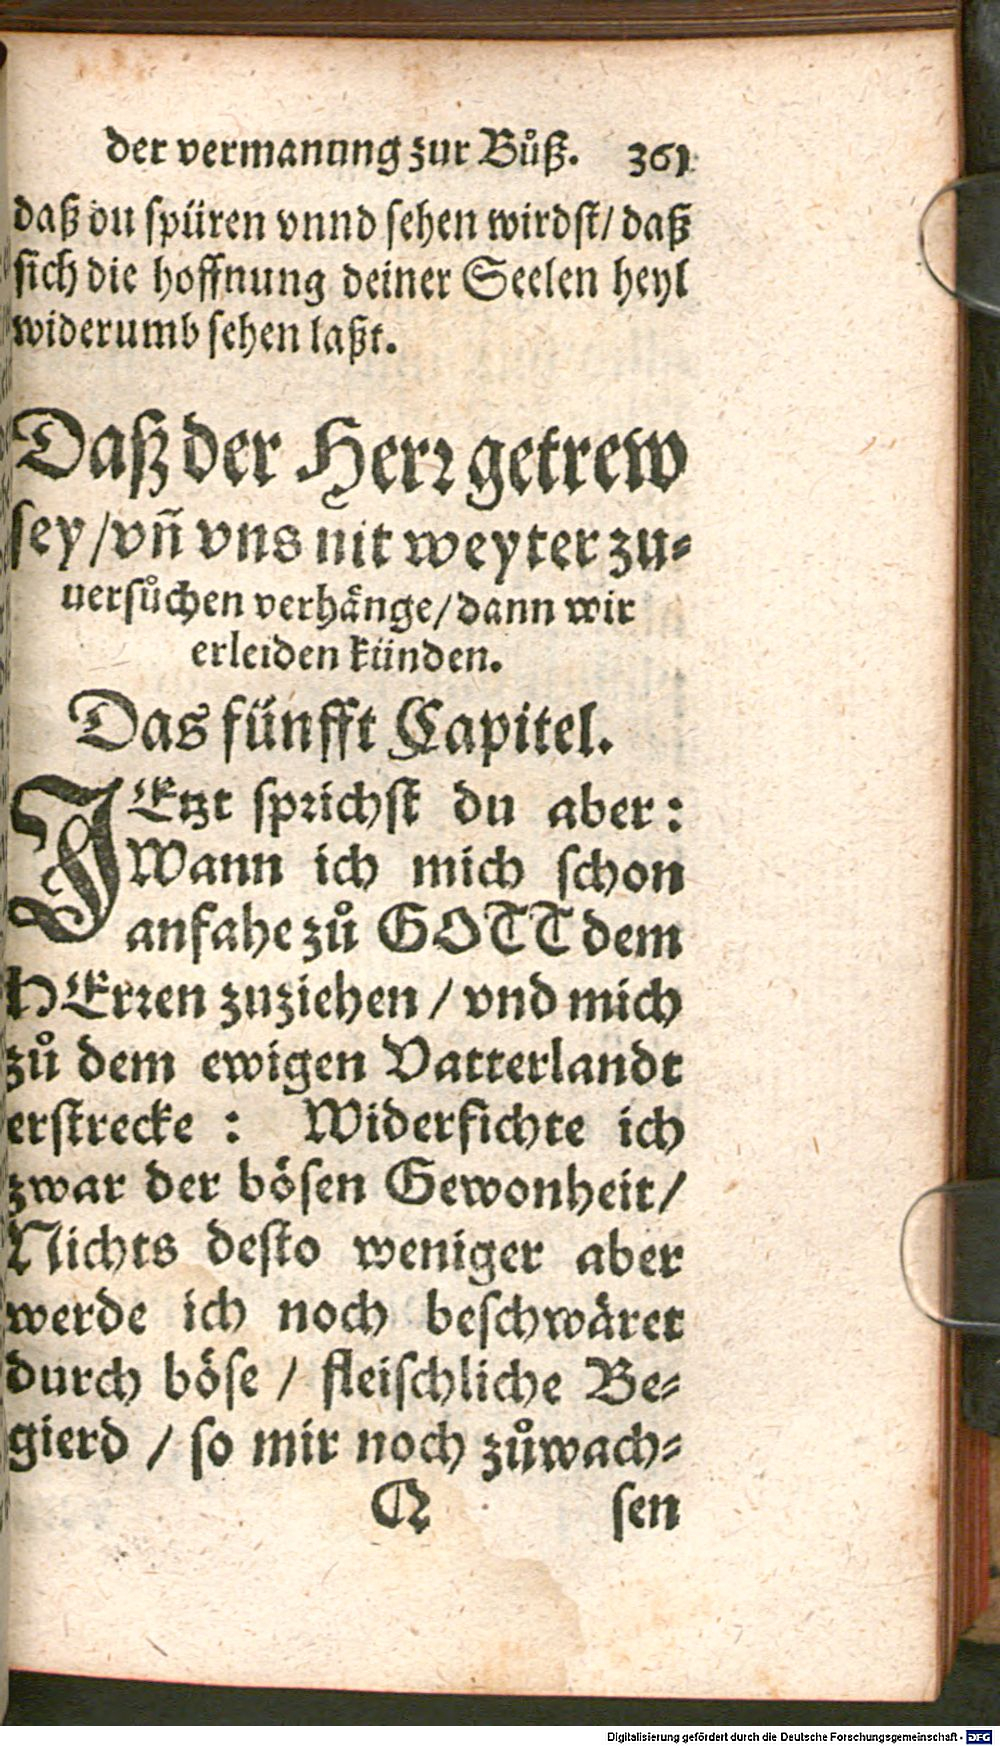 der vermanung zur Bůß. 361
daß du spüren vnnd sehen wirdst/ daß
sich die hoffnung deiner Seelen heyl
widerumb sehen laßt.
Daß der Herr getrew
sey/vñ vns nit weyter zu-
uersůchen verhänge/dann wir
erleiden künden.
Das fünfft Capitel.
JEtzt sprichst du aber:
Wann ich mich schon
anfahe zů GOTT dem
HErren zuziehen / vnd mich
zů dem ewigen Vatterlandt
erstrecke : Widerfichte ich
zwar der bösen Gewonheit/
Nichts desto weniger aber
werde ich noch beschwäret
durch böse / fleischliche Be-
gierd / so mir noch zůwach-
Q sen
Digitalisierung gefördert durch die Deutsche Forschungsgemeinschaft - DFG